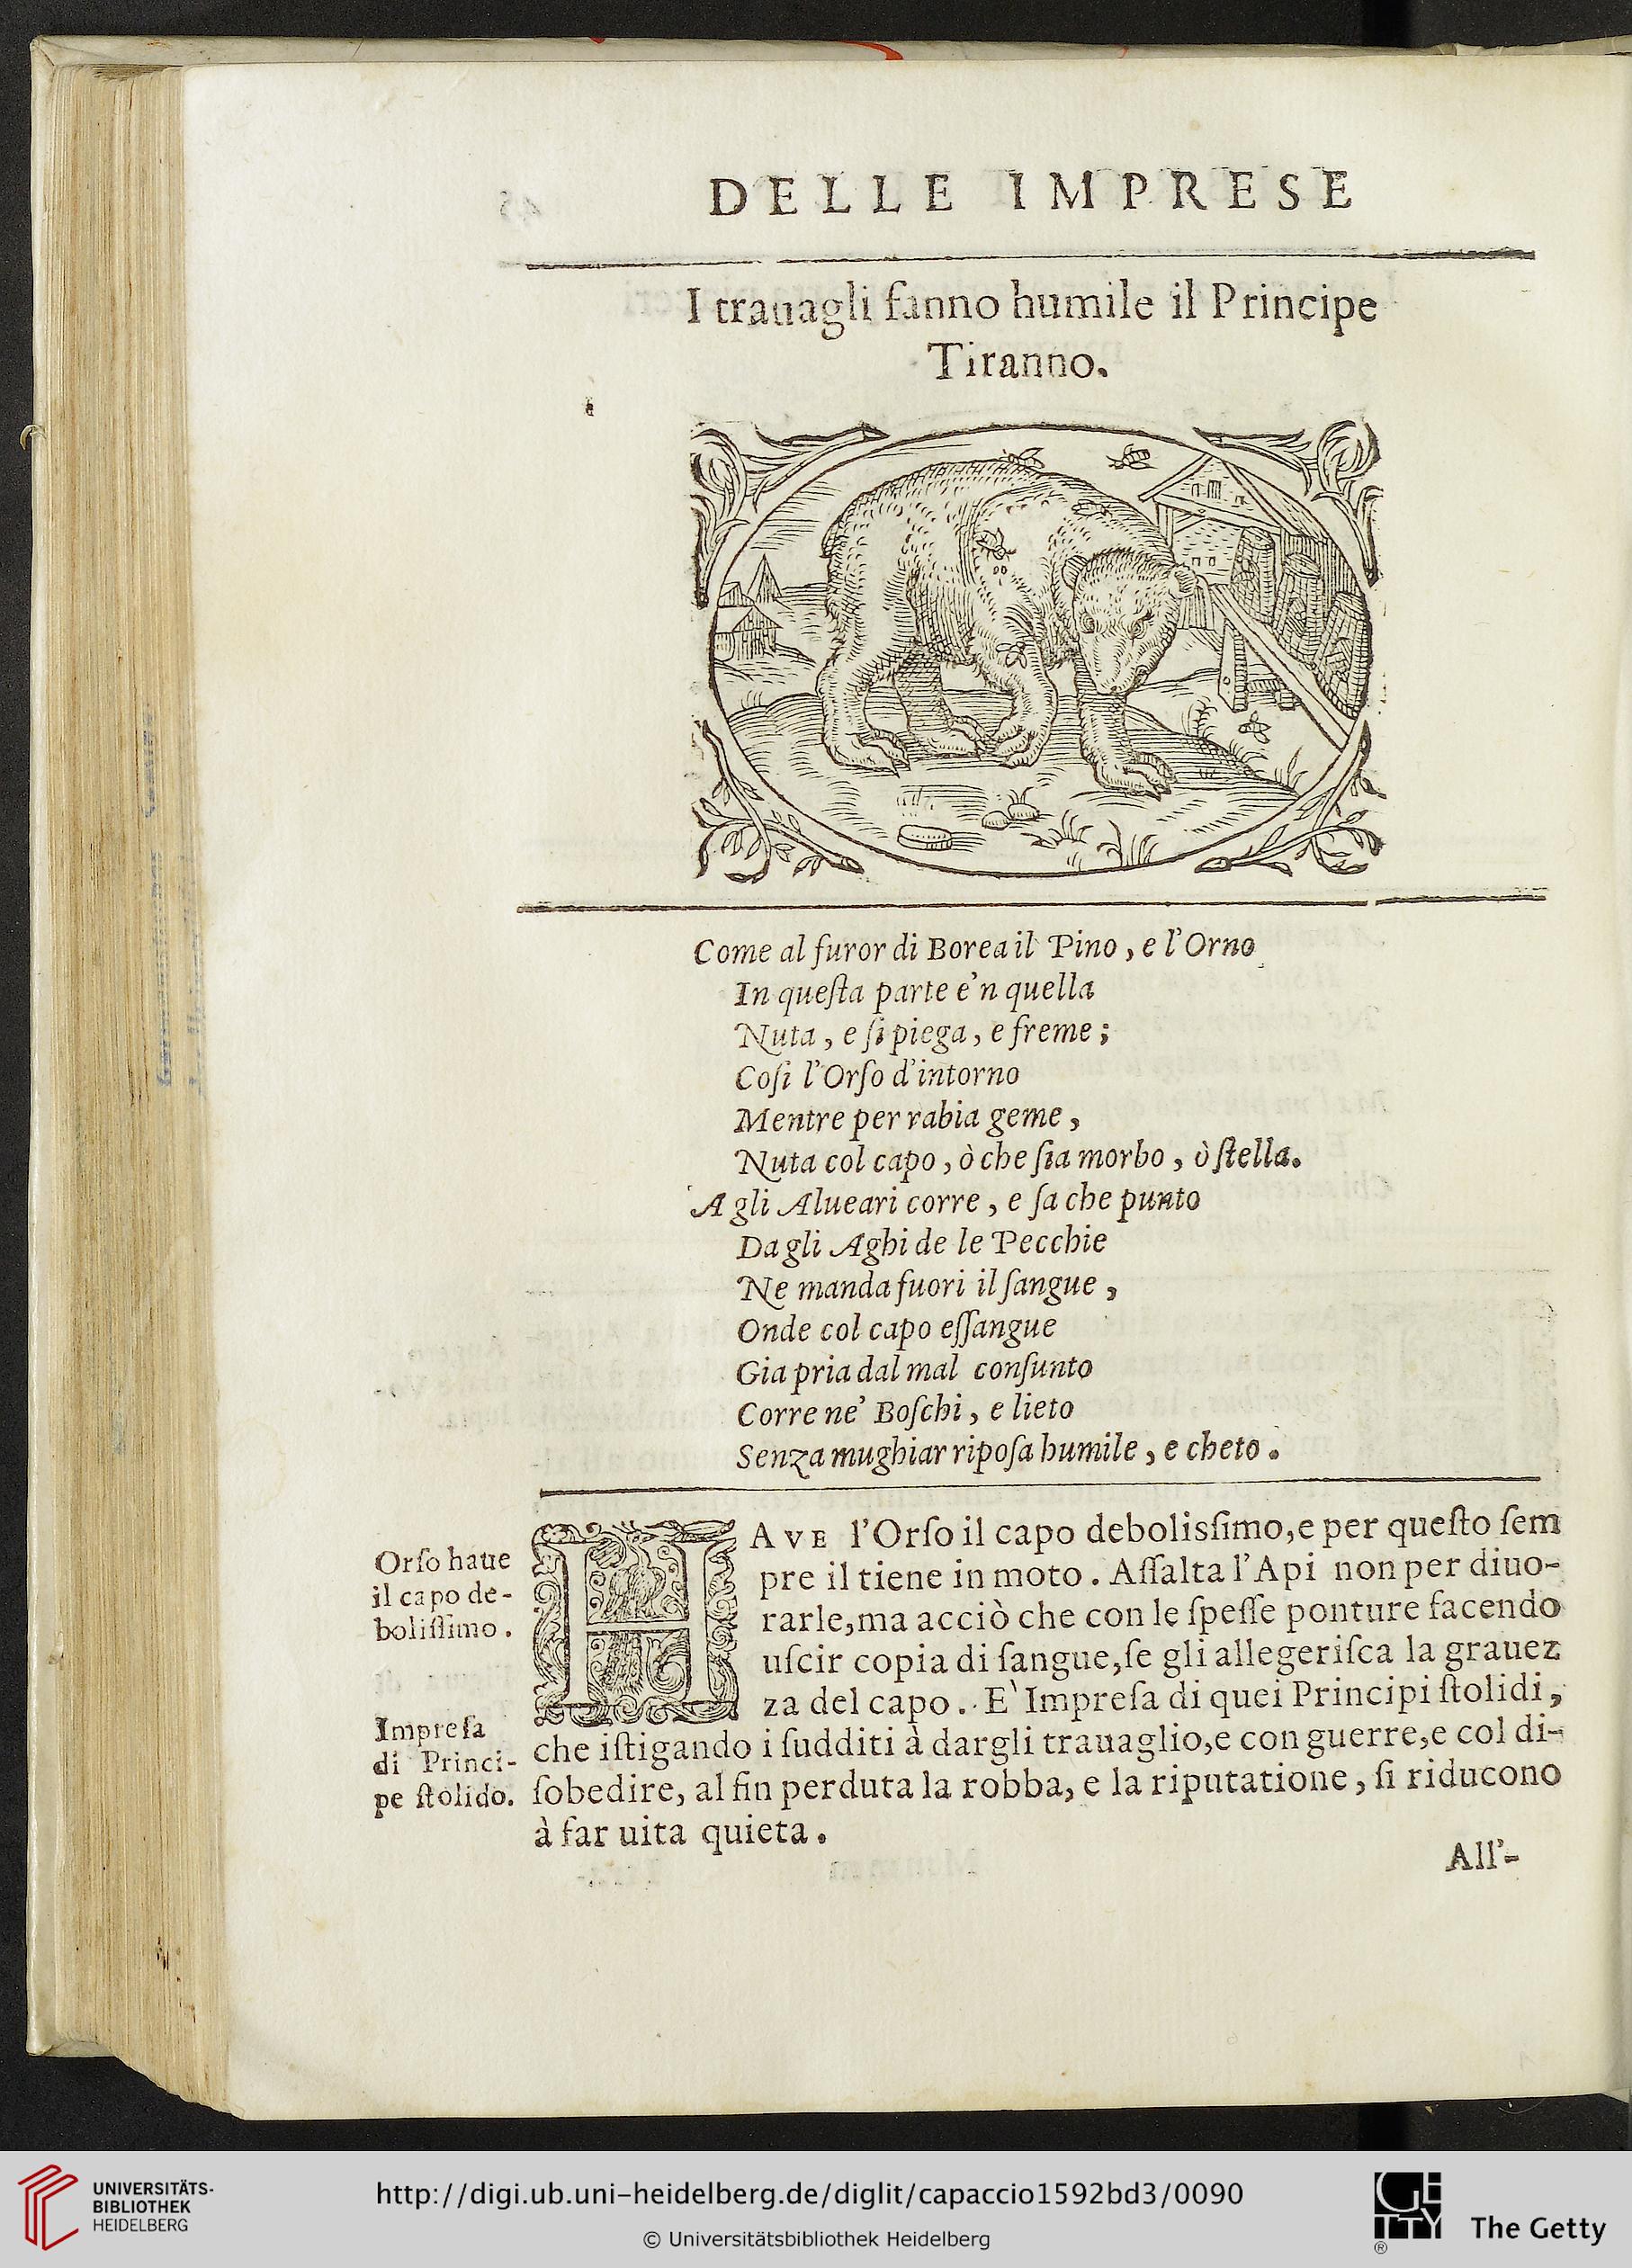 DELLE IMPRESE
I trauagli fanno humile il Principe
Tiranno.
Come al furor di Borea il Pino, e l'Orno
In queſta parte e'n quella
Nuta, e ſi piega, e freme;
Coſi l'Orſo d'intorno
Mentre per rabia geme,
Nuta col capo, ò che ſia morbo, ò ſtella.
A gli Alueari corre, e fa che punto
Da gli Aghi de le Pecchie
Ne manda fuori il ſangue,
Onde col capo eſſangue
Gia pria dal mal conſunto
Corre ne' Boſchi, e lieto
Senza mughiar ripoſa humile, e cheto.
Orſo haue
il capo de-
boliſſimo.
HAVE l'Orſo il capo debolisſimo, e per queſto ſem
pre il tiene in moto. Aſſalta l'Api non per diuo-
rarle, ma acciò che con le ſpeſſe ponture facendo
uſcir copia di ſangue, ſe gli allegeriſca la grauez
za del capo. E' Impreſa di quei Principi ſtolidi,
Impreſa
di Princi-
pe ſtolido.
che iſtigando i ſudditi à dargli trauaglio, e con guerre, e col di-
ſobedire, al fin perduta la robba, e la riputatione, ſi riducono
à far uita quieta.
All'-
UNIVERSITÄTS-
BIBLIOTHEK
HEIDELBERG
http://digi.ub.uni-heidelberg.de/diglit/capaccio1592bd3/0090
© Universitätsbibliothek Heidelberg
GETTY
®
The Getty